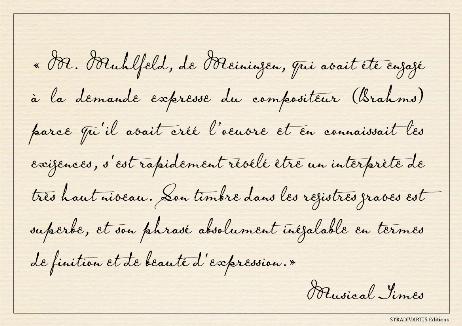 « M. Muhlfeld, de Meiningen, qui avait été engagé
à la demande expresse du compositeur (Brahms)
parce qu'il avait créé l'oeuvre et en connaissait les
exigences, s'est rapidement révélé être un interprète de
très haut niveau. Son timbre dans les registres graves est
superbe, et son phrasé absolument inégalable en termes
de finition et de beauté d'expression. »
Musical Times
STRADIVARIUS Editions